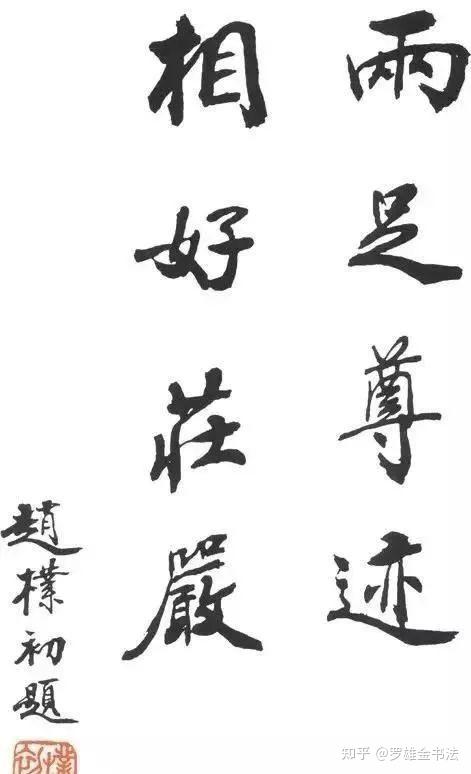 兩足尊迹
相好莊嚴
趙樸初題
知乎 @罗雄金书法